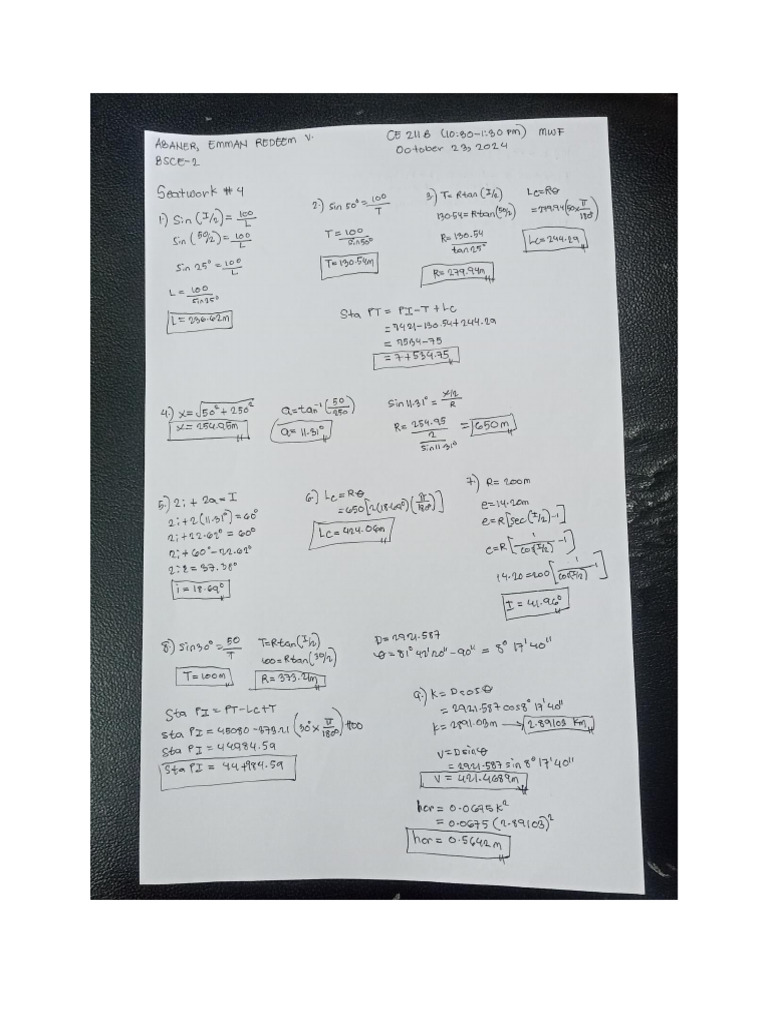 ABANER, EMMAN REDEEM V.
CE 211 B (10:30-1:30 PM) MWF
BSCE-2
October 23, 2024
Seatwork #4
1.) Sin (I/2) = 100/L
Sin (50/2) = 100/L
Sin 25° = 100/L
L = 100/sin25°
L = 236.62m
2.) Sin 50° = 100/T
T = 100/sin50°
T = 130.54m
3.) T = Rtan (I/2)
130.54 = Rtan (50/2)
R = 130.54/tan25°
R = 279.94m
Lc = Rθ
= 279.94 (50 x π/180°)
Lc = 244.29
Sta PT = PI - T + Lc
= 7421 - 130.54 + 244.29
= 7534-75
= 7 + 534.75
4.) x = √50² + 250²
x = 254.95m
a = tan⁻¹ (50/250)
a = 11.31°
Sin 11.31° = x/2/R
R = 254.95/2/sin 11.31° = 650m
5.) 2i + 2a = I
2i + 2(11.31°) = 60°
2i + 22.62° = 60°
2i + 60° - 22.62°
= 37.38°
i = 18.69°
6.) Lc = Rθ
= 650 [2(18.69°) (π/180°)]
Lc = 424.06m
7.) R = 200m
e = 14.20m
e = R [sec (I/2) -1]
e = R [1/cos(I/2) -1]
14.20 = 200 [1/cos(I/2) -1]
I = 41.96°
8.) Sin30° = 50/T
T = 100m
T = Rtan (I/2)
100 = Rtan (30/2)
R = 373.21m
Sta PI = PT - Lc + T
Sta PI = 45080 - 373.21 (30° x π/180°) + 100
Sta PI = 44984.59
Sta PI = 44 + 984.59
D = 2921.587
θ = 81° 42' 20" - 90° = 8° 17' 40"
9.) K = D cos θ
= 2921.587 cos 8° 17' 40"
K = 2891.03m → 2.89103 Km
V = D sin θ
= 2921.587 sin 8° 17' 40"
V = 421.4689m
hcr = 0.0675 K²
= 0.0675 (2.89103)²
hcr = 0.5642 m